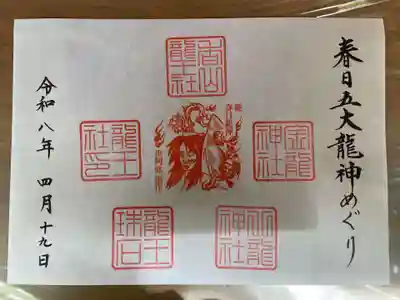 春日五大龍神めぐり
香山
龍王社
金龍
神社
龍王
社印
龍王
珠石
令和八年 四月十九日